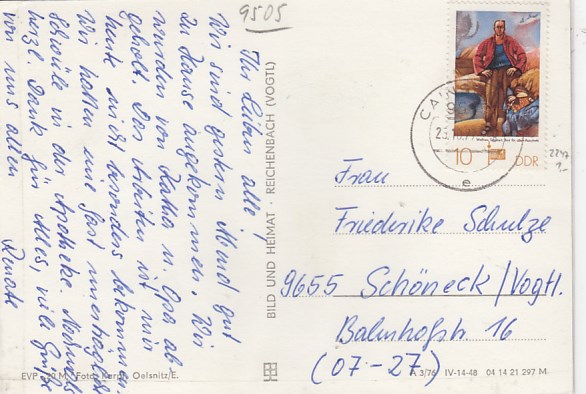 9505
Ihr Lieben alle!
Wir sind gestern Abend gut
zu Hause angekommen. Wir
wurden von Katha u. Opa ab
geholt. Das Arbeiten ist mir
heute nicht besonders bekommen.
Wir hatten eine fast unerträgliche
Schwüle in der Apotheke. Nochmals
herzl. Dank für Alles, viele Grüße
von uns allen
Renate
BILD UND HEIMAT · REICHENBACH (VOGTL)
10
DDR
e
Frau
Friederike Schulze
9655 Schöneck/Vogtl.
Bahnhofstr. 16
(07-27)
A 3/76 IV-14-48 04 14 21 297 M
Oelsnitz/E.